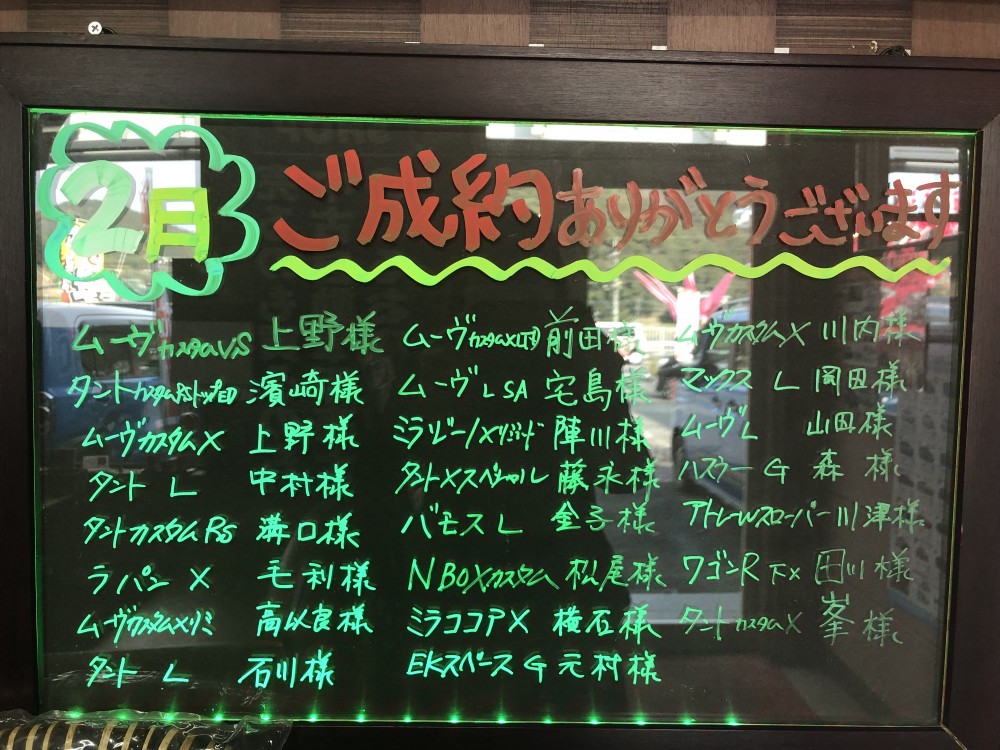 2月
ご成約ありがとうございます
ムーヴカスタムVS 上野様
タントカスタムRSトップED 濱崎様
ムーヴカスタムX 上野様
タント L 中村様
タントカスタムRS 溝口様
ラパン X 毛利様
ムーヴカスタムXリミ 高以良様
タント L 石川様
ムーヴカスタムXLTD 前田様
ムーヴLSA 宅島様
ミラジーノXリミテッド 陣川様
タントXスペシャル 藤永様
バモスL 金子様
NBOXカスタム 松尾様
ミラココアX 横石様
EKスペースG 元村様
ムーヴカスタムX 川内様
マックス L 岡田様
ムーヴL 山田様
ハスラー G 森様
アトレーWスローパー 川津様
ワゴンR FX 田川様
タントカスタムX 峯様